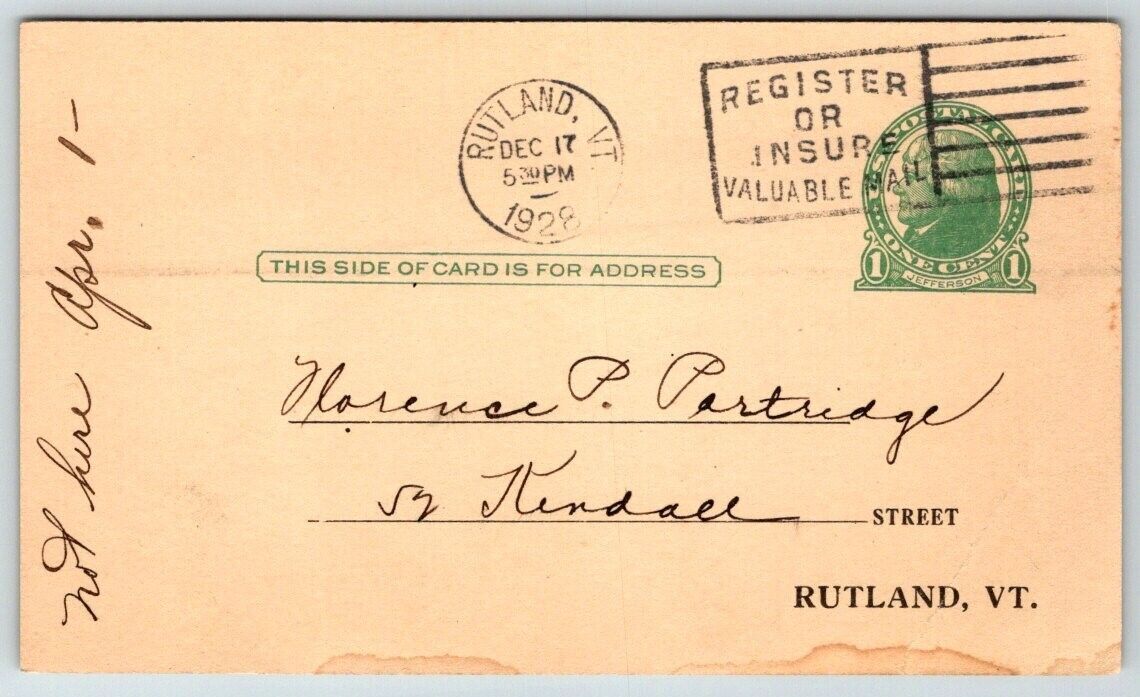 REGISTER
OR
INSURE
VALUABLE MAIL
RUTLAND, VT
DEC 17
5 30 PM
1928
U.S. POSTAGE
1 ONE CENT 1
JEFFERSON
THIS SIDE OF CARD IS FOR ADDRESS
Florence P. Partridge
Kendall STREET
RUTLAND, VT.
not here Apr. 1-